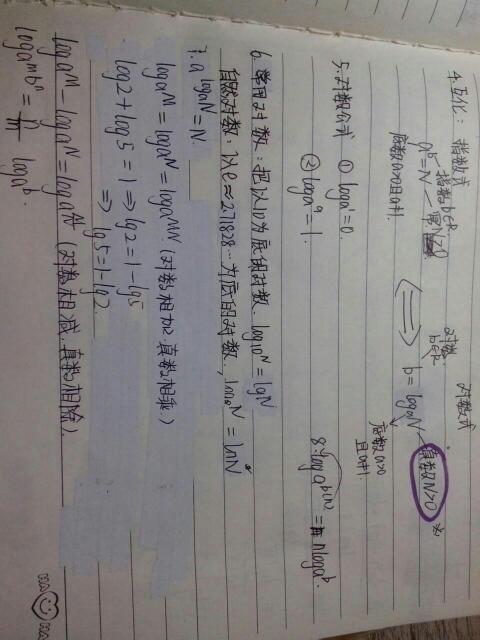 4. 互化: 指数式 对数式
指数b∈R 对数b∈R
a^b = N — 幂N>0 ⟺ b = log_a N 真数N>0
底数a>0且a≠1. 底数a>0且a≠1
5. 对数公式 ① log_a 1 = 0.
② log_a a = 1. 8. log_a b^n = n log_a b.
6. 常用对数: 把以10为底的对数. log_10 N = lg N
自然对数: 以e≈2.71828…为底的对数, log_e N = ln N
7. a^{log_a N} = N.
log_a M + log_a N = log_a MN. (对数相加, 真数相乘.)
log2 + log5 = 1 ⇒ lg2 = 1 - lg5
⇒ lg5 = 1 - lg2.
log_a M - log_a N = log_a M/N (对数相减, 真数相除).
log_{a^m} b^n = n/m log_a b.